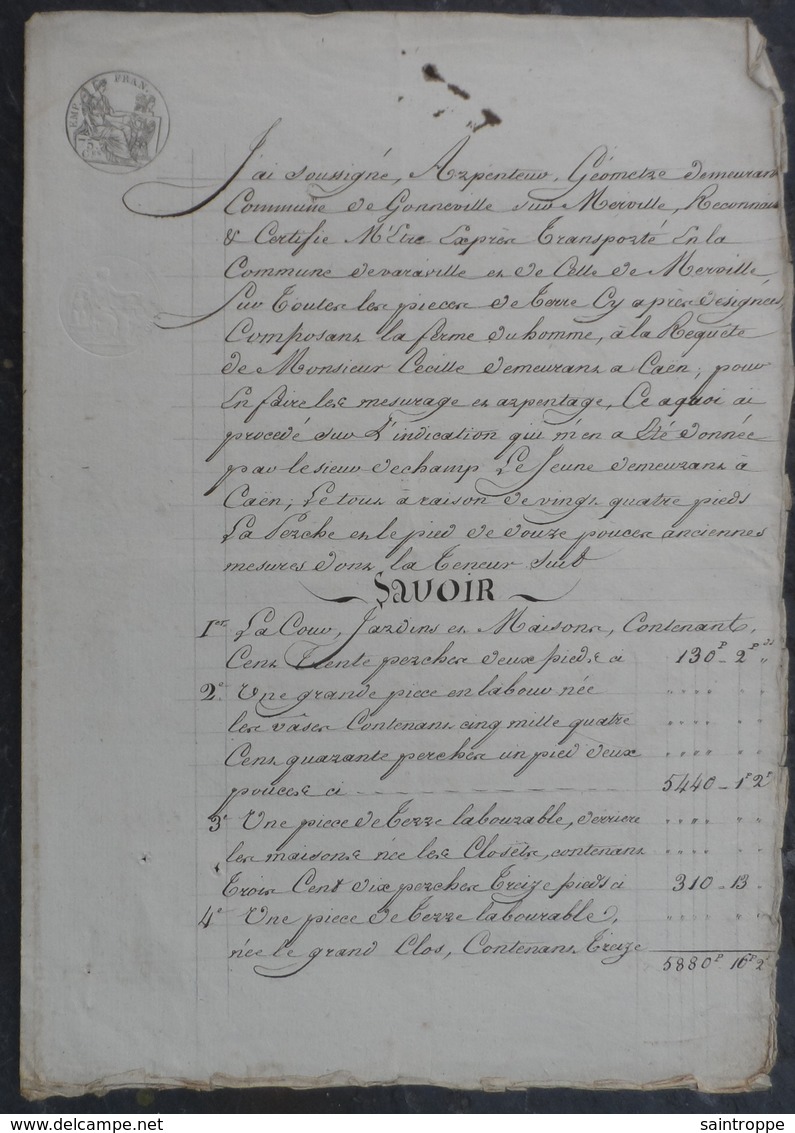 EMP. FRAN.
J'ai soussigné, Arpenteur, Géometre demeurant
Commune de Gonneville sur Merville, Reconnais
& Certifie M'Etre Exprès Transporté En la
Commune devaraville et de Celle de Merville
Sur Toutes les pieces de terre Cy après designées
Composant la ferme du homme, à la Requête
de Monsieur Cecille demeurant a Caën, pour
En faire les mesurage et arpentage, Ce aquoi ai
procedé sur L'indication qui m'en a Eté donnée
par le sieur dechamp Le Jeune demeurant à
Caën; Le tout à raison de vingt quatre pieds
La Perche et le pied de douze pouces anciennes
mesures dont la Teneur suit
SAVOIR
1er La Cour, Jardins et Maisons, Contenant,
Cent Trente perches deux pieds ci 130P - 2P "
2e Une grande piece en labour née
les vâses Contenant cinq mille quatre
Cent quarante perches un pied deux
pouces ci 5440 - 1P 2P
3e Une piece de Terre labourable, derriere
les maisons née les Closêts, contenant
Trois Cent dix perches Treize pieds ci 310 - 13 "
4e Une piece de Terre labourable,
née le grand Clos, Contenant Treize
5880P 16P 2P
saintroppe